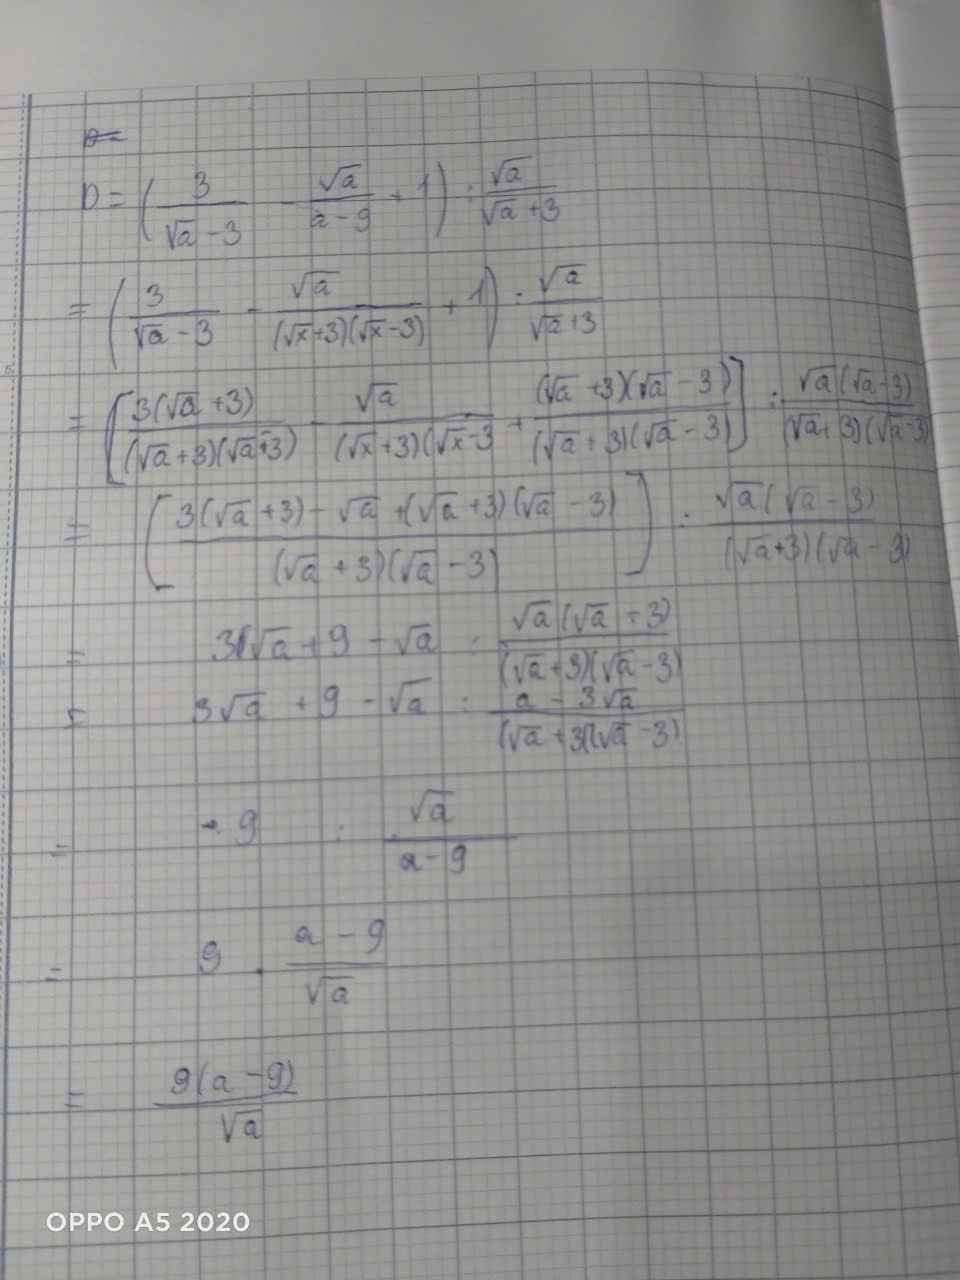 D = (3/(√a - 3) - √a/(a - 9) + 1) : √a/(√a + 3)
= (3/(√a - 3) - √a/((√x+3)(√x-3)) + 1) : √a/(√a+3)
= [3(√a+3)/((√a+3)(√a+3)) - √a/((√x+3)(√x-3) + (√a+3)(√a-3)/((√a+3)(√a-3))] : √a(√a-3)/((√a+3)(√a-3))
= [(3(√a+3) - √a + (√a+3)(√a-3))/((√a+3)(√a-3))] : √a(√a-3)/((√a+3)(√a-3))
= 3(√a + 9 - √a : √a(√a+3)/((√a+3)(√a-3))
= 3√a + 9 - √a : (a - 3√a)/((√a+3)(√a-3))
= 9 : √a/(a-9)
= 9 . (a - 9)/√a
= 9(a-9)/√a
OPPO A5 2020